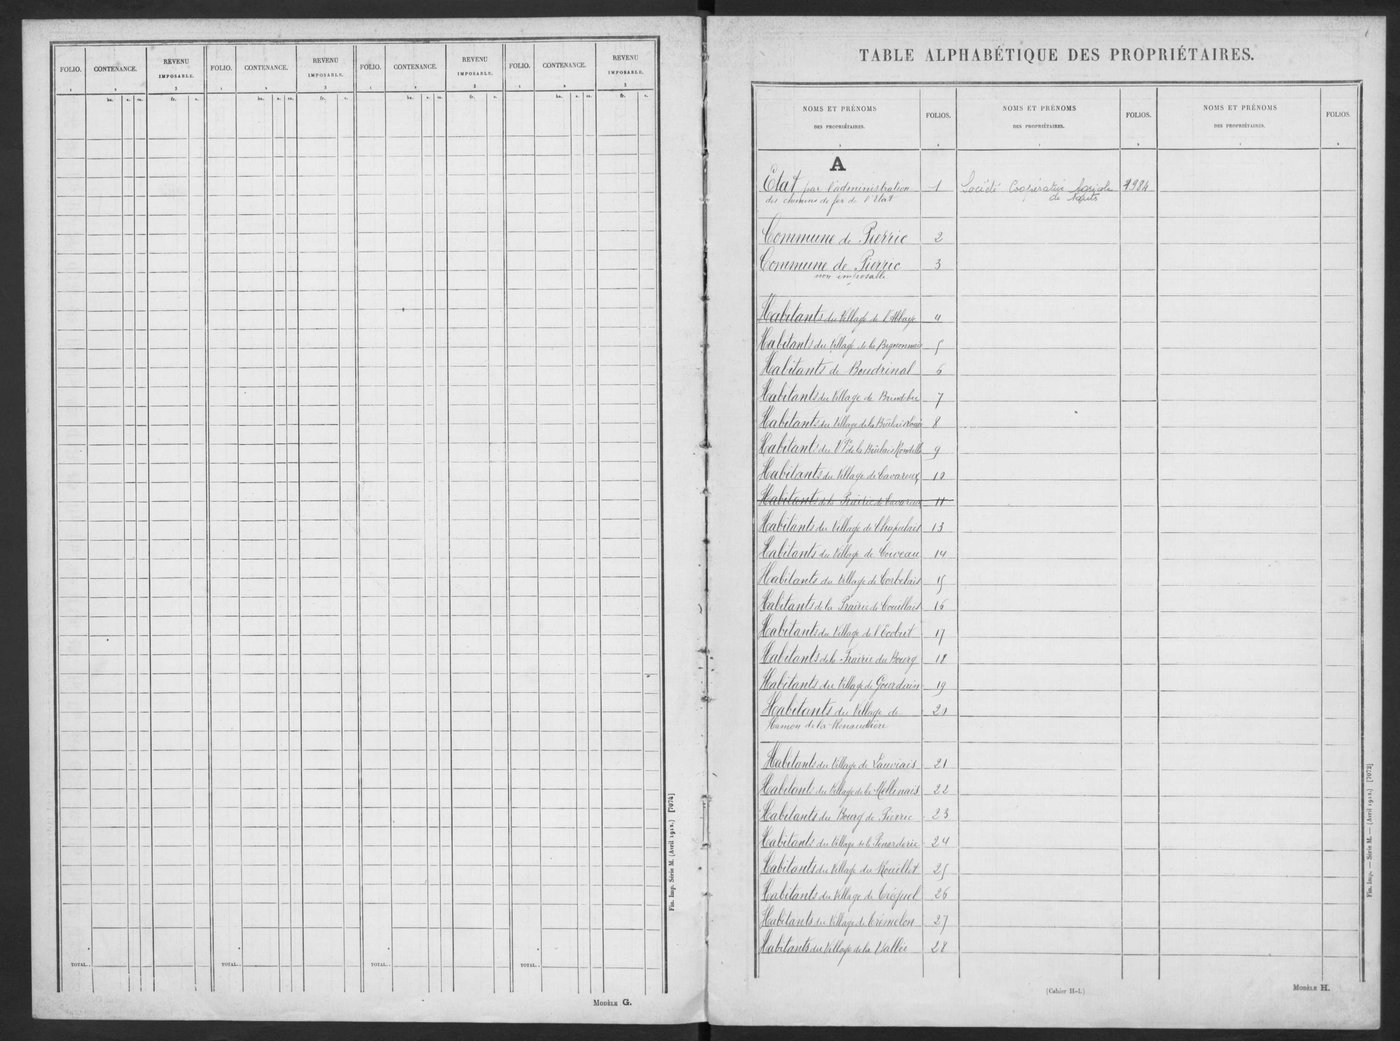 FOLIO. CONTENANCE. REVENU IMPOSABLE. FOLIO. CONTENANCE. REVENU IMPOSABLE. FOLIO. CONTENANCE. REVENU IMPOSABLE. FOLIO. CONTENANCE. REVENU IMPOSABLE.
1 2 3 1 2 3 1 2 3 1 2 3
ha. a. ca. fr. c. ha. a. ca. fr. c. ha. a. ca. fr. c. ha. a. ca. fr. c.
TOTAL. . TOTAL. . TOTAL. . TOTAL. .
Fin. Imp. Série M. (Avril 1912.) [7074]
MODÈLE G.
TABLE ALPHABÉTIQUE DES PROPRIÉTAIRES.
NOMS ET PRÉNOMS DES PROPRIÉTAIRES. FOLIOS. NOMS ET PRÉNOMS DES PROPRIÉTAIRES. FOLIOS. NOMS ET PRÉNOMS DES PROPRIÉTAIRES. FOLIOS.
A
Etat par l'administration 1 Société Coopérative Agricole 1984
des chemins de fer de l'Etat de
Commune de Pierric 2
Commune de Pierric 3
non imposable
Habitants du Village de l'Abbaye 4
Habitants du Village de la Bignonnais 5
Habitants de Boudrinal 6
Habitants du Village de 7
Habitants du Village de la Brûlais 8
Habitants du Vge de la Brûlais 9
Habitants du Village de Cavareux 10
Habitants de la Prairie de Cavareux 11
Habitants du Village de Chapelais 13
Habitants du Village de Coiveau 14
Habitants du Village de Corbelais 15
Habitants de la Prairie de Couellais 16
Habitants du Village de l'Ecobut 17
Habitants de la Prairie du Bourg 18
Habitants du Village de Gourdain 19
Habitants du Village de 20
Hamon de la Renaudière
Habitants du Village de Lauviais 21
Habitants du Village de la Mellenais 22
Habitants du Bourg de Pierric 23
Habitants du Village de la Penarderie 24
Habitants du Village du Rouillet 25
Habitants du Village de Trépuel 26
Habitants du Village de Trémelon 27
Habitants du Village de la Vallée 28
(Cahier H-1.)
MODÈLE H.
Fin. Imp. — Série M. — (Avril 1912.) [7072]